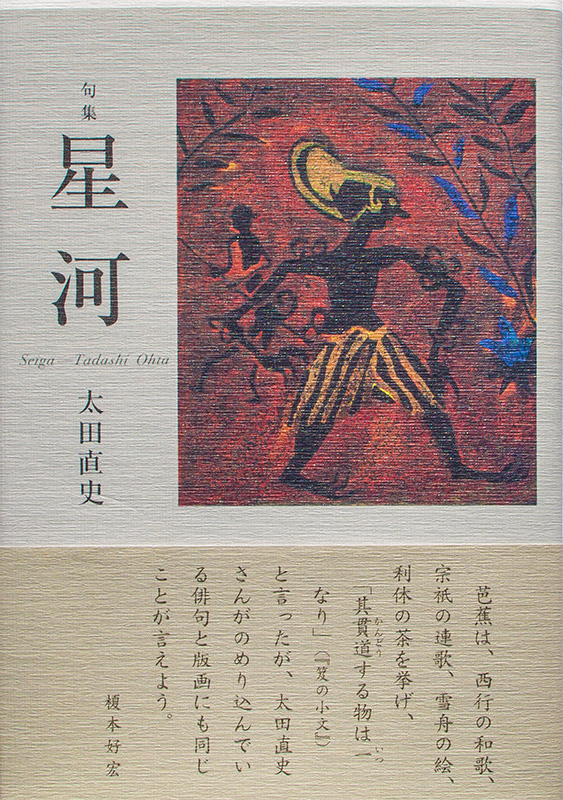 句集
星河
Seiga Tadashi Ohta
太田直史
芭蕉は、西行の和歌、
宗祇の連歌、雪舟の絵、
利休の茶を挙げ、
「其貫道する物は一
かんどう
いつ
なり」(『笈の小文』)
と言ったが、太田直史
さんがのめり込んでい
る俳句と版画にも同じ
ことが言えよう。
榎本好宏